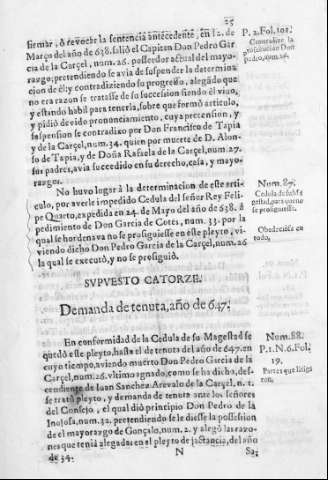 25
firmar, ò revocar la sentencia antecedente, en 12. de
Março del año de 638. saliò el Capitan Don Pedro Gar
cia de la Carçel, num. 26. posseedor actual del mayo-
razgo; pretendiendo se avia de suspender la determina
cion de èl; y contradiziendo su progresso, alegãdo que
no era razon se tratasse de su succession siendo èl vivo,
y estando habil para tenerla, sobre que formò articulo,
y pidiò devido pronunciamiento, cuya pretension, y
suspension se contradixo por Don Francisco de Tapia
y de la Carçel, num. 34. quien por muerte de D. Alon-
so de Tapia, y de Doña Rafaela de la Carçel, num. 27.
sus padres, avia succedido en su derecho, casa, y mayo-
razgos.
P. 2. Fol. 101.
Contradize la
pretension Don
Pedro, num. 26.
No huvo lugar à la determinacion de este arti-
culo, por averle impedido Cedula del señor Rey Feli-
pe Quarto, expedida en 24. de Mayo del año de 638. à
pedimento de Don Garcia de Cotes, num. 33. por la
qual se hordenava no se prosiguiesse en este pleyto, vi-
viendo dicho Don Pedro Garcia de la Carçel, num. 26
la qual se executò, y no se prosiguiò.
Num. 87.
Cedula de su Ma
gestad, para que no
se prosiguiesse.
Obedecese en
todo.
SVPVESTO CATORZE.
Demanda de tenuta, año de 647.
En conformidad de la Cedula de su Magestad se
quedò este pleyto, hasta el de tenuta del año de 647. en
cuyo tiempo, aviendo muerto Don Pedro Garcia de la
Carçel, num. 26. vltimo agnado, como se ha dicho, des-
cendiente de Iuan Sanchez Arevalo de la Carçel, n. 1.
se tratò pleyto, y demanda de tenuta ante los señores
del Consejo, el qual diò principio Don Pedro de la
Inojosa, num. 32. pretendiendo se le diesse la possession
de el mayorazgo de Gonçalo, num. 2. y alegò las razo-
nes que tenia alegadas en el pleyto de jactancia, del año
de 34.
Num. 88.
P. 1. N. 6. Fol.
19.
Partes que litiga
ron.
N
Sa;